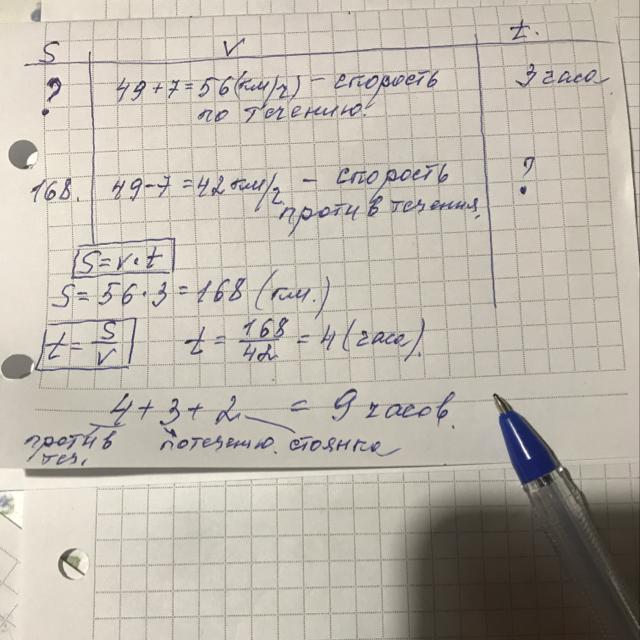 S V t.
? 49+7=56(км/ч) – спорость 3 часа
по течению.
168. 49-7=42км/ч – спорость ?
против течения.
S=v·t
S=56·3=168 (км.)
t=S/v t=168/42=4(часа).
4+3+2=9 часов.
против потечению. стоянка
теч.